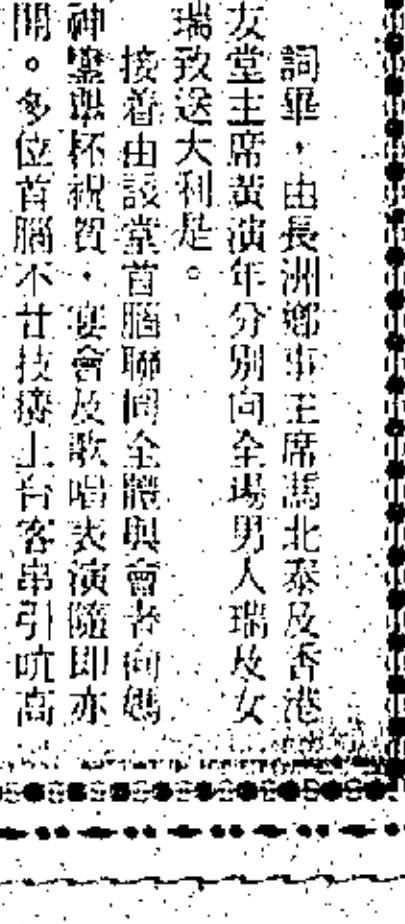 詞畢，由長洲鄉事主席馮北泰及香港
友堂主席黃演年分別向全場男人瑞及女
瑞致送大利是。
接着由該堂首腦聯同全體與會者向媽
神鑾舉杯祝賀，宴會及歌唱表演隨即亦
開。多位首腦不甘技癢上台客串引吭高